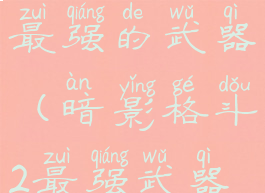 zuì qiáng de wǔ qì
最强的武器
àn yǐng gé dǒu
(暗影格斗
zuì qiáng wǔ qì
2最强武器